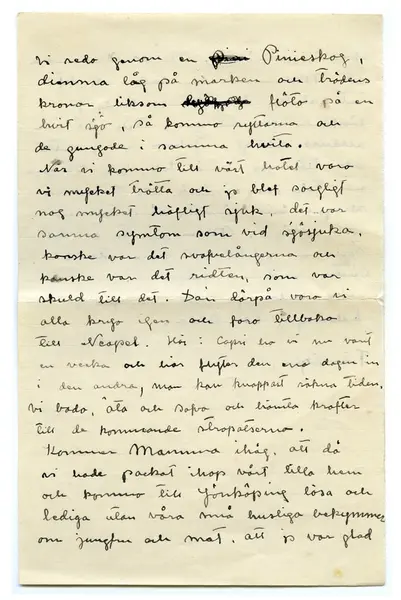 Vi redo genom en Pinieskog,
dimma låg på marken och trädens
kronor liksom flöto på en
hvit sjö, så kommo ryttarna och
de gungade i samma hvita.
När vi kommo till vårt hotel voro
vi mycket trötta och jag blef sorgligt
nog mycket häftigt sjuk, det var
samma symtom som vid sjösjuka,
kanske var det svafvelångorna och
kanske var det ridten, som var
skuld till det. Dan därpå voro vi
alla krya igen och foro tillbaka
till Neapel. Här i Capri ha vi nu varit
en vecka och här flyter den ena dagen in
i den andra, man kan knappast räkna tiden.
Vi bada, äta och sofva och hämta krafter
till de kommande strapatserna.
Kommer Mamma ihåg, att då
vi hade packat ihop vårt lilla hem
och kommo till Jönköping lösa och
lediga utan våra små husliga bekymmer
om jungfru och mat, att jag var glad